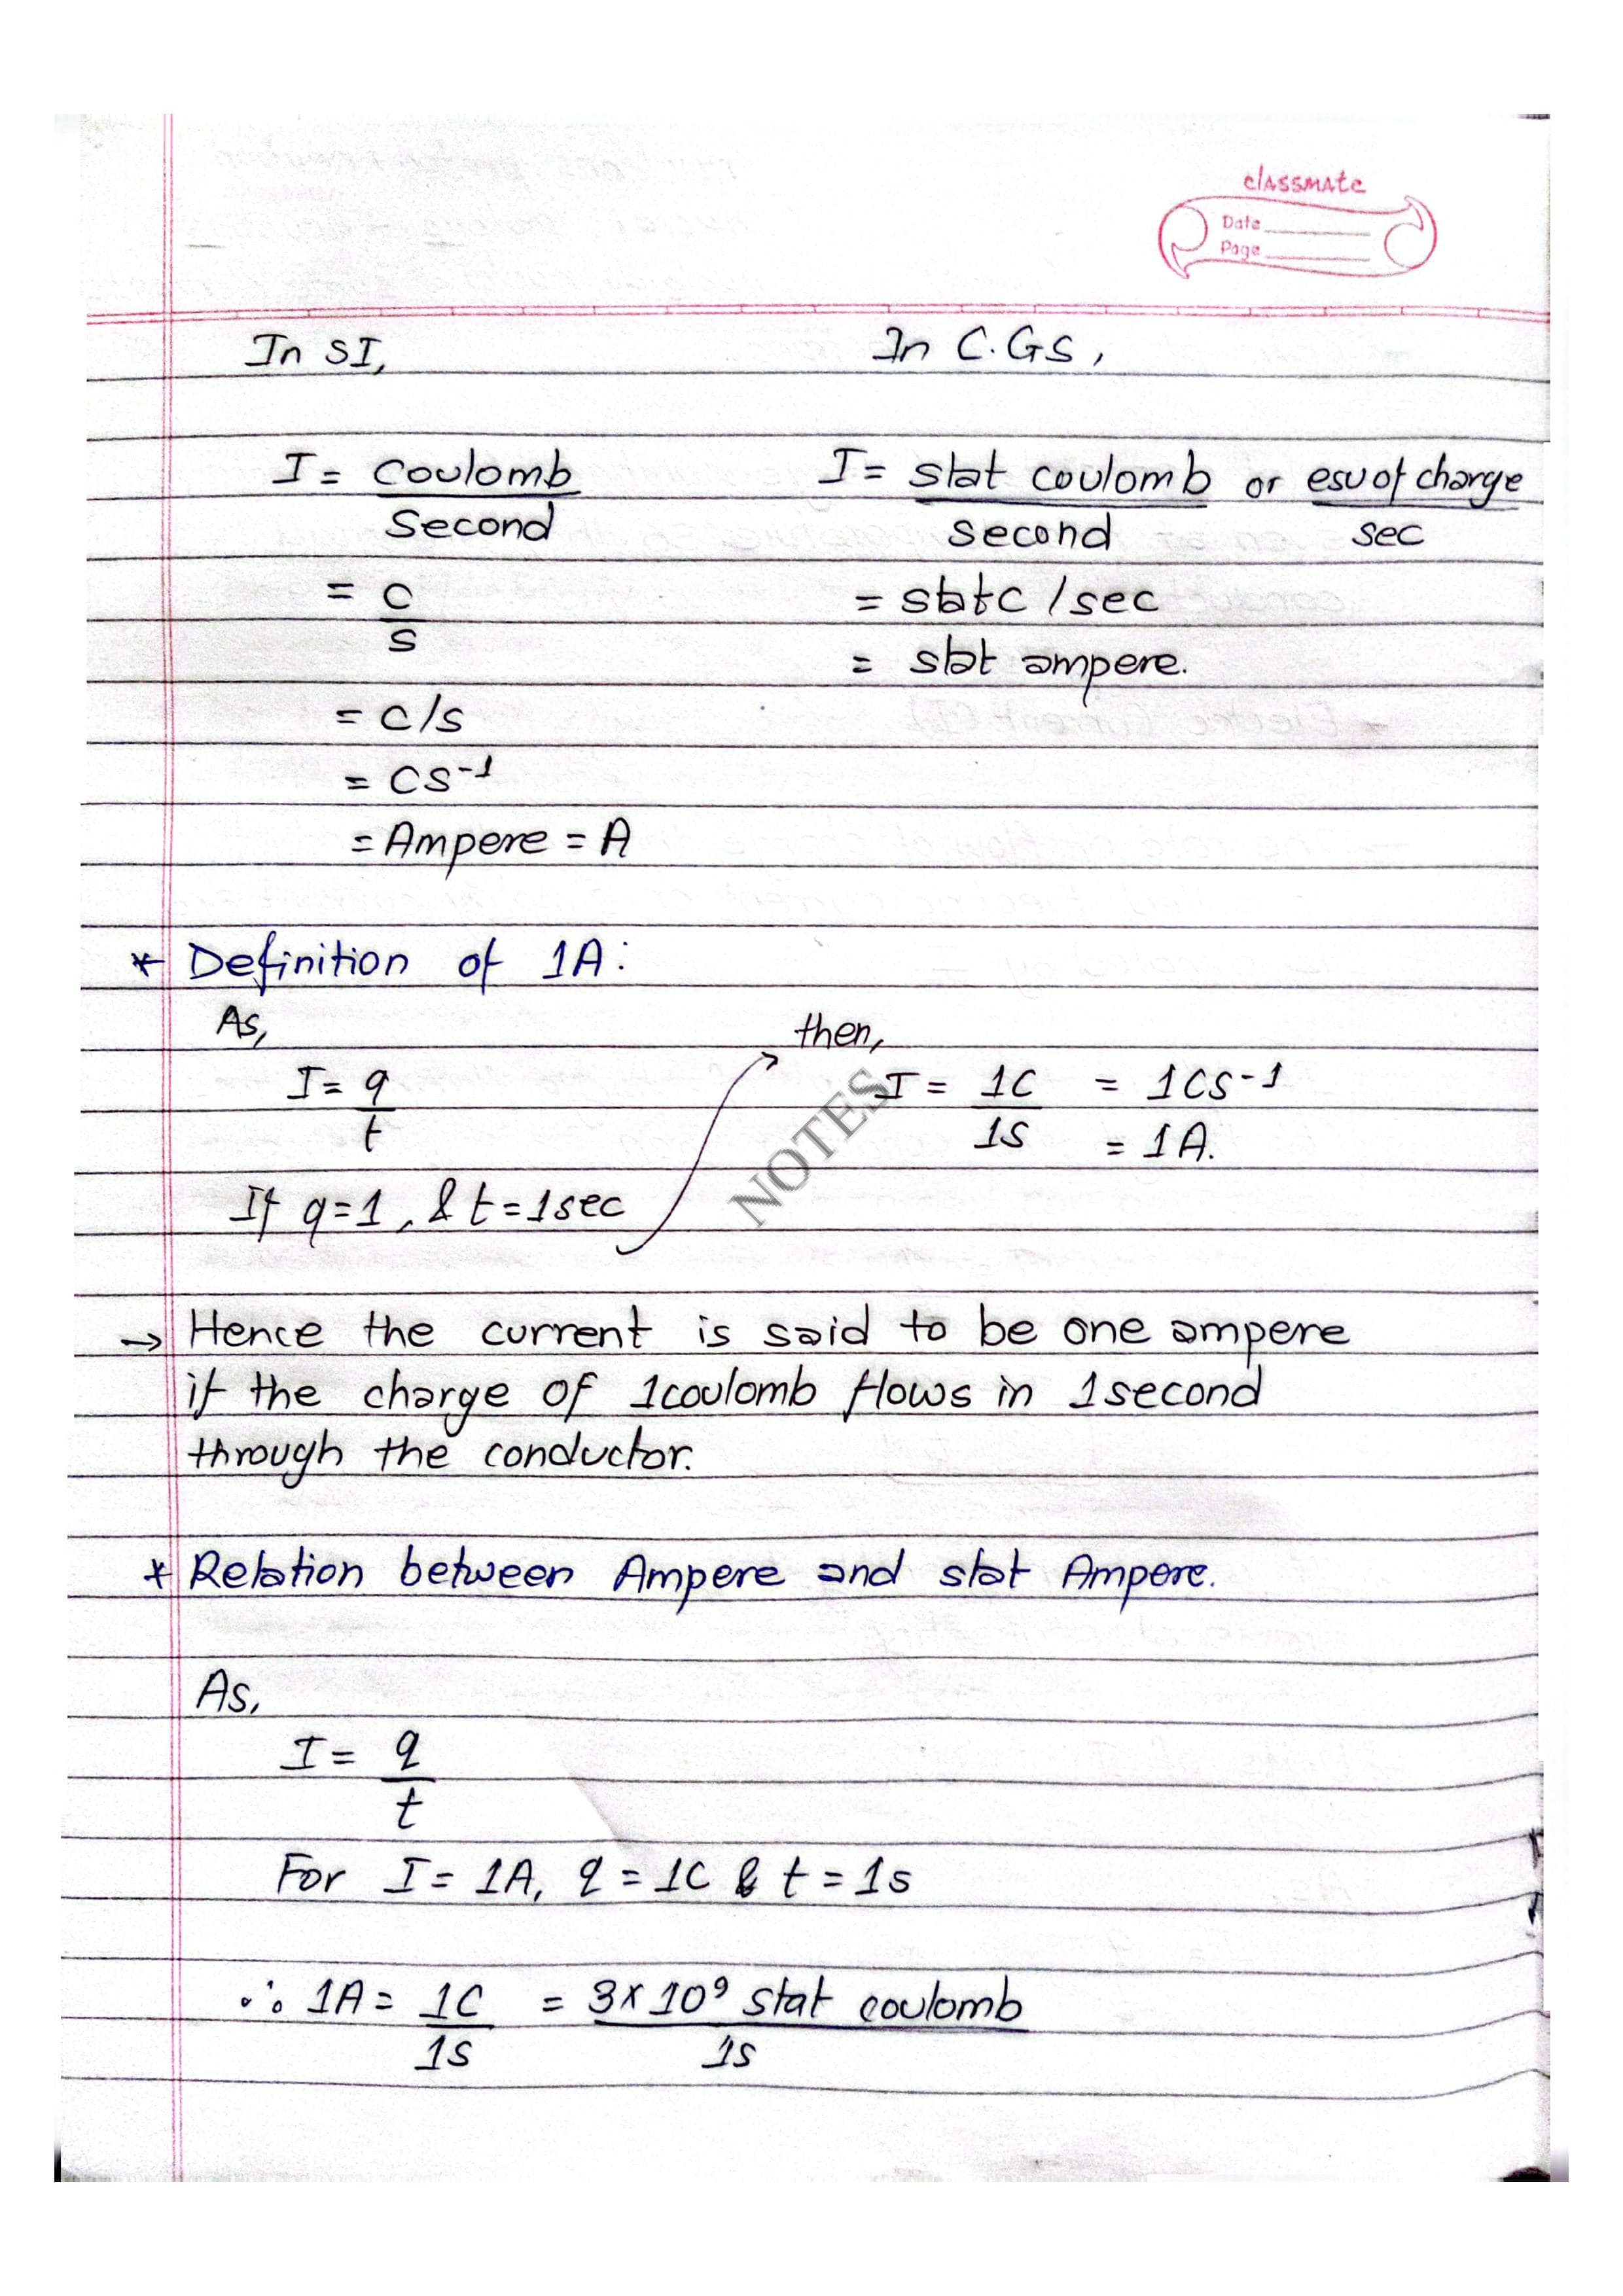 classmate
Date
Page
In SI,
In C.GS,
I = Coulomb / Second
I = stat coulomb / second or esu of charge / sec
= C / S
= statC / sec
= stat ampere.
= C/S
= CS⁻¹
= Ampere = A
* Definition of 1A:
As,
I = q / t
If q = 1, & t = 1sec
then,
I = 1C / 1S = 1CS⁻¹
= 1A.
NOTES
→ Hence the current is said to be one ampere
if the charge of 1coulomb flows in 1second
through the conductor.
* Relation between Ampere and stat Ampere.
As,
I = q / t
For I = 1A, q = 1C & t = 1s
∴ 1A = 1C / 1s = 3×10⁹ stat coulomb / 1s